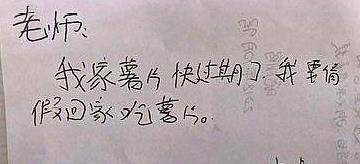 老师：
我家薯片快过期了，我要请
假回家吃薯片。